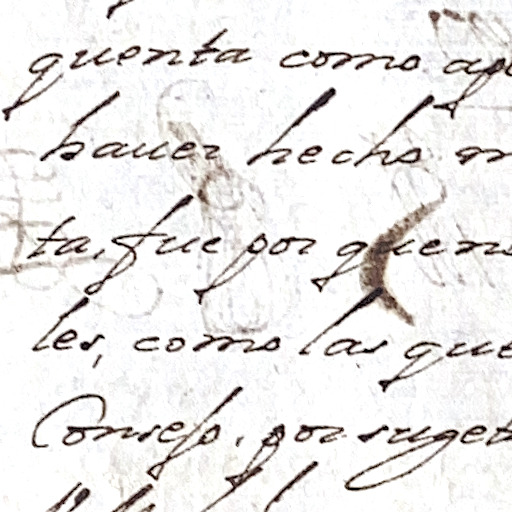 quenta como apo
hauer hecho m
ta, fue por quens
les, como las que
Consejo, por suget